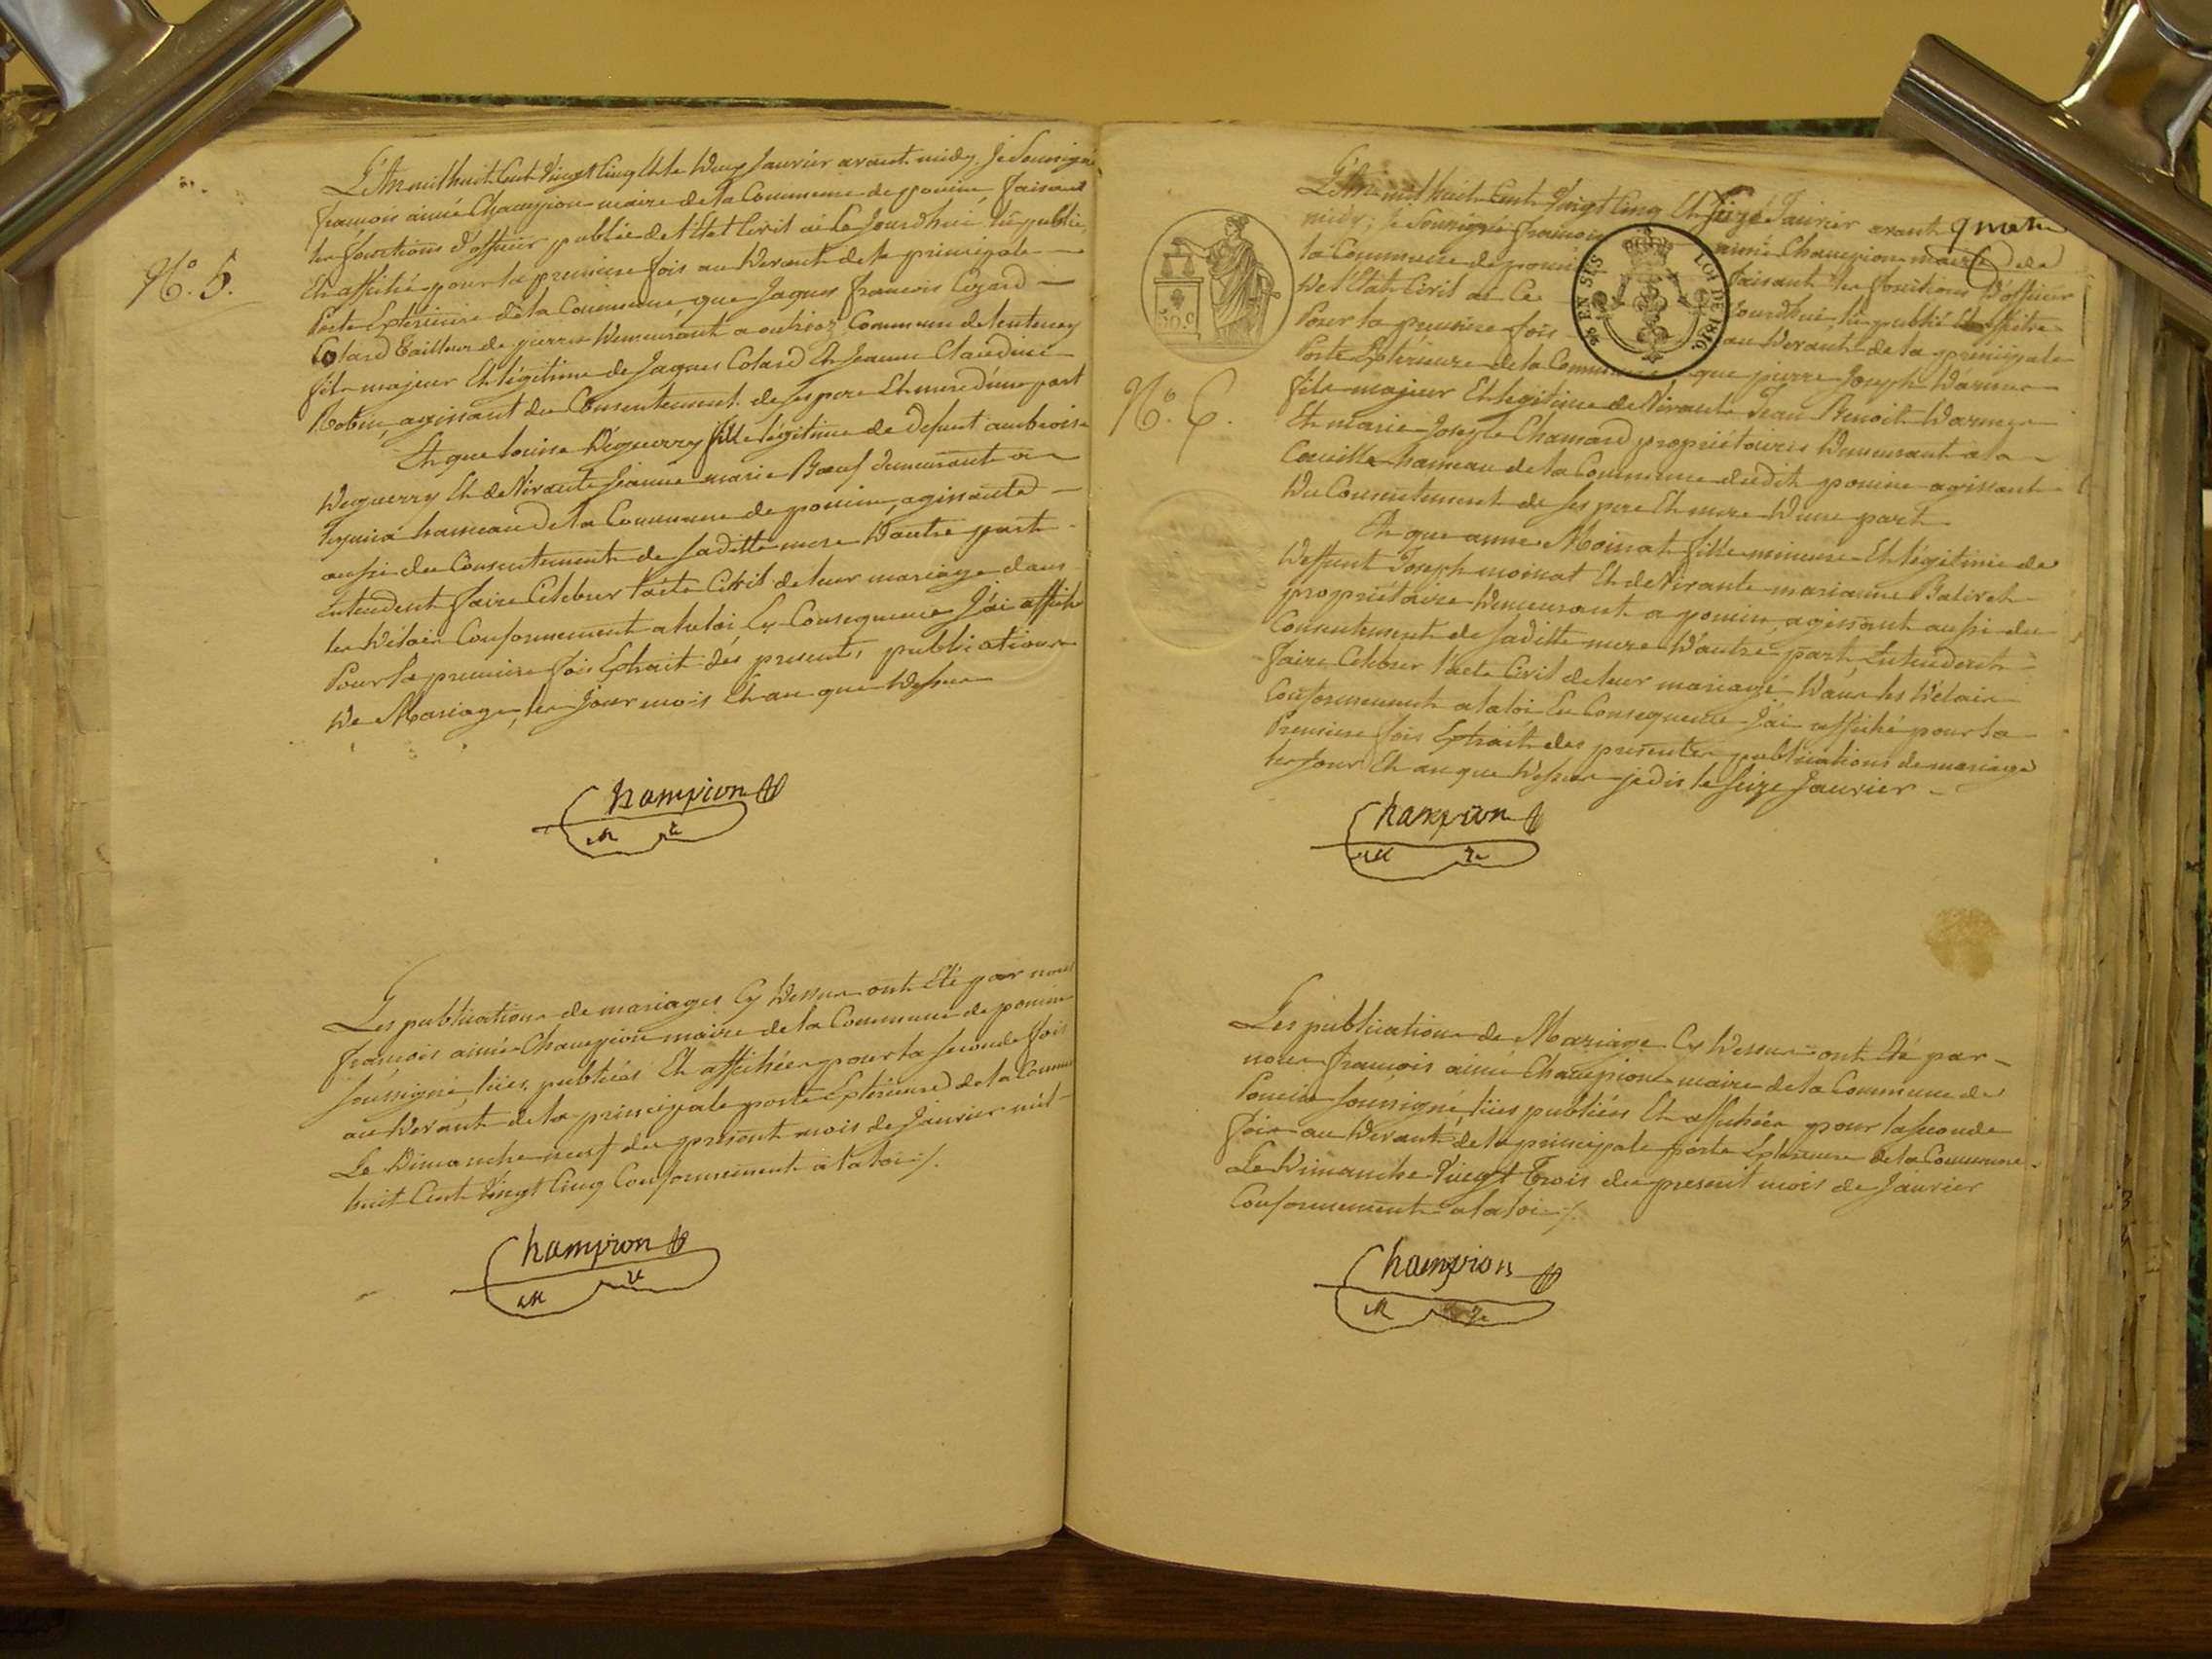 N.° 5.
L'An mil huit Cent Vingt Cinq Et le Deux Janvier avant midy. Je Soussigné
françois aimé Champion maire de la Commune de poncin faisant
les fonctions d'officier public de l'Etat Civil ai Ce Jourdhui lû publié,
Et affiché pour la premiere fois au Devant de la principale
Porte Exterieure de la Commune, que Jaques françois Cezard
Colard Tailleur de pierre Demeurant a outriaz Commune de lentenay
fils majeur Et légitime de Jaques Colard Et Jeanne Claudine
Robin, agissant du Consentement de ses pere Et mere d'une part
Et que louise Déguerry fille légitime de Defunt ambroise
Deguerry Et de Vivante Jeanne marie Bœuf demeurant a
hameau de la Commune de poncin, agissante
aussi du Consentement de saditte mere D'autre part
Entendent faire Celebrer l'acte Civil de leur mariage dans
les Délais Conformement a la loi En Consequence J'ai affiché
Pour la premiere fois Extrait des presentes publications
De Mariage, les Jour mois Et an que Dessus
Champion
M re
Les publications de mariages Cy Dessus ont Eté par nous
françois aimé Champion maire de la Commune de poncin
soussigné, lües, publiées Et affichées pour la seconde fois
au Devant de la principale porte Exterieure de la Commune
Le Dimanche neuf du present mois de Janvier mil
huit Cent Vingt Cinq Conformement a la loi ./.
Champion
M re
L'An mil huit Cent Vingt Cinq Et Seize Janvier avant
midy; Je Soussigné françois aimé Champion maire de
la Commune de poncin faisant les fonctions D'officier
De l'Etat Civil ai Ce Jourdhui, lû publié Et affiché
Pour la premiere fois au Devant de la principale
Porte Exterieure de la Commune que pierre Joseph
50.C
% EN SUS LOI DE 1816.
N.° 6.
fils majeur Et légitime de Vivants Jean Benoit
Et marie Josephe Chamard propriétaires Demeurant a la
hameau de la Commune dudit poncin agissant
Du Consentement de ses pere Et mere D'une part
Et que anne Moinat fille mineure Et légitime de
Deffunt Joseph moinat Et de Vivante marianne
propriétaire Demeurant a poncin, agissant aussi du
Consentement de saditte mere D'autre part, Entendent
faire Celebrer l'acte Civil de leur mariage Dans les Délais
Conformement a la loi En Consequence J'ai affiché pour la
Premiere fois Extrait des presentes publications de mariage
les Jour Et an que Dessus je dis le Seize Janvier
Champion
M re
Les publications de Mariage Cy Dessus ont Eté par
nous françois aimé Champion maire de la Commune de
Poncin soussigné, lües publiées Et affichées pour la seconde
fois au Devant de la principale porte Exterieure de la Commune
Le Dimanche Vingt Trois du present mois de Janvier
Conformement a la loi ./.
Champion
M re